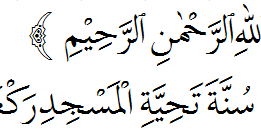 للهِ ٱلرَّحْمٰنِ ٱلرَّحِيْمِ ﴾
سُنَّةَ تَحِيَّةِ الْمَسْجِدِ